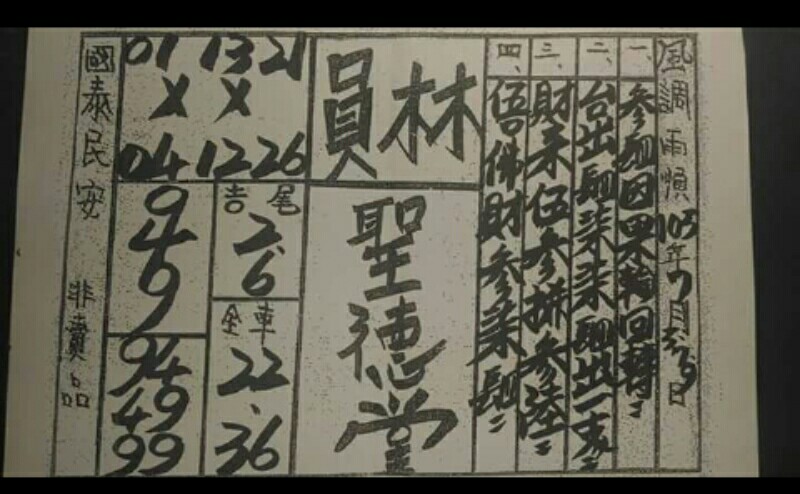 風調雨順 105年7月5/9日
一、參刪因果輪回轉
二、台出刪柒柒刪出一支
三、財來伍參拼參陸
四、伍佛財參柒刪
林員
聖德堂
01 13 21
X X
04 12 26
吉尾
2.6
全車
22.36
9
4
9
94
49
99
國泰民安 非賣品